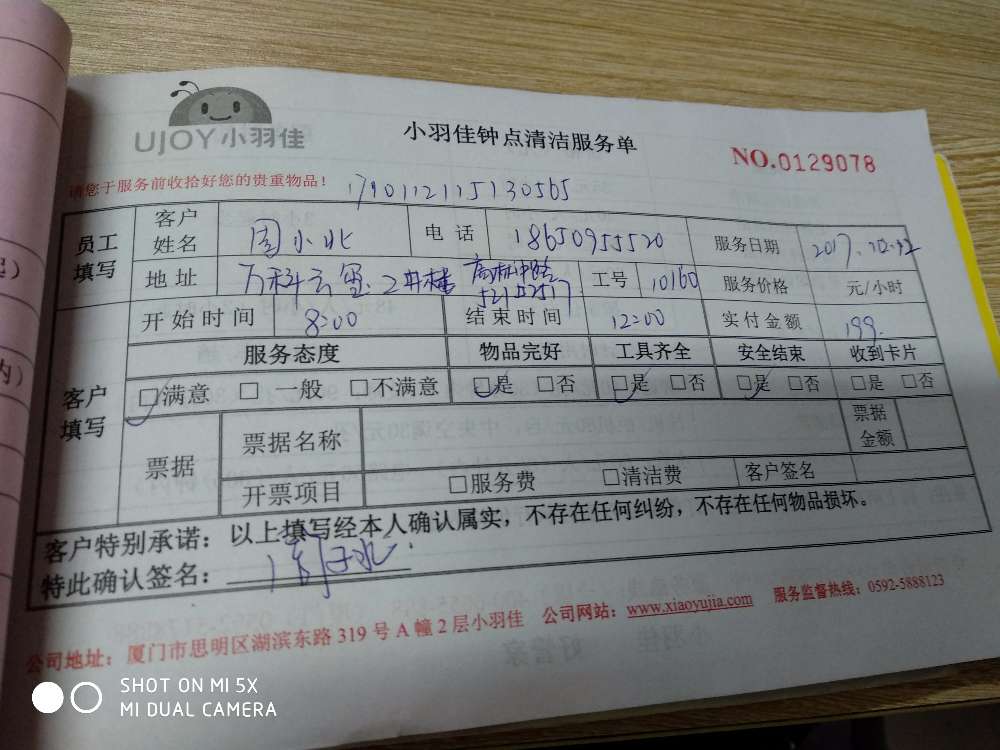 UJOY小羽佳
小羽佳钟点清洁服务单
NO.0129078
请您于服务前收拾好您的贵重物品！
员工填写 客户姓名 周小北 电话 18650955520 服务日期 2017.
地址 万科云玺. 2井楼 工号 10160 服务价格 元/小时
开始时间 8:00 结束时间 12:00 实付金额 199.
客户填写 服务态度 物品完好 工具齐全 安全结束 收到卡片
□满意 □一般 □不满意 □是 □否 □是 □否 □是 □否 □是 □否
票据 票据名称 票据金额
开票项目 □服务费 □清洁费 客户签名
客户特别承诺：以上填写经本人确认属实，不存在任何纠纷，不存在任何物品损坏。
特此确认签名：
公司地址：厦门市思明区湖滨东路319号A幢2层小羽佳 公司网站：www.xiaoyujia.com 服务监督热线：0592-5888123
SHOT ON MI 5X
MI DUAL CAMERA